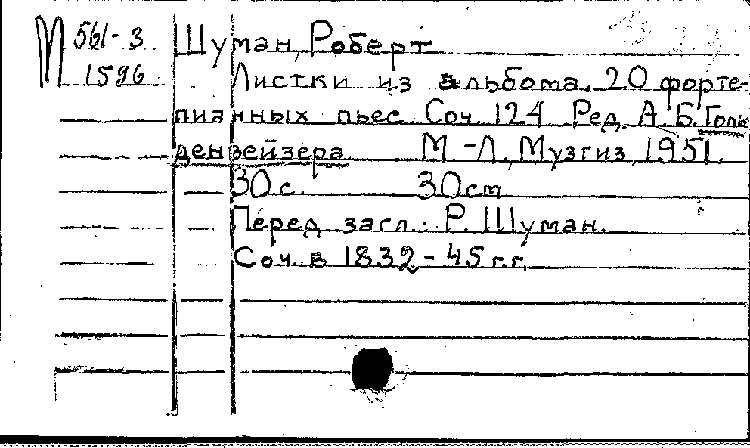 М 561-3 Шуман, Роберт
1596 Листки из альбома. 20 форте-
пианных пьес. Соч. 124. Ред. А. Б. Голь
денвейзера. М.-Л., Музгиз, 1951.
30 с. 30 cm
Перед загл.: Р. Шуман.
Соч. в 1832-45 г.г.